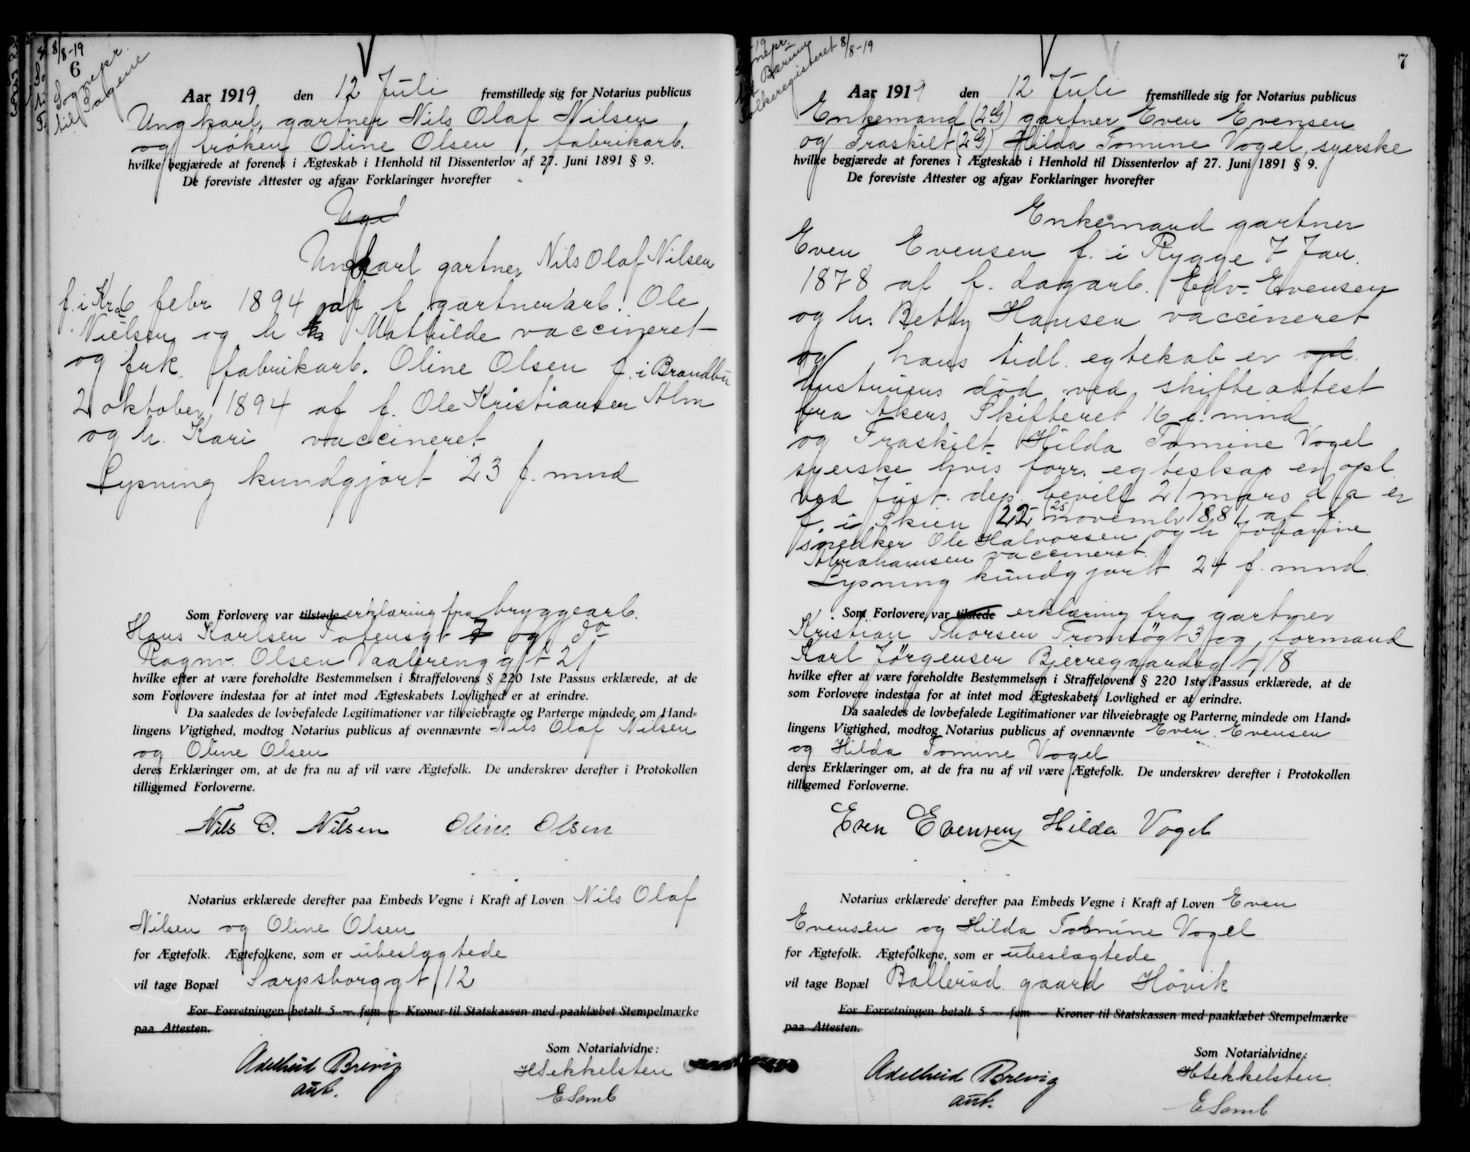 8/8-19
6
Sognepr.
til Sagene
Aar 1919 den 12 Juli fremstillede sig for Notarius publicus
Ungkarl, gartner Nils Olaf Nilsen
og frøken Oline Olsen, fabrikarb.
hvilke begjærede at forenes i Ægteskab i Henhold til Dissenterlov af 27. Juni 1891 § 9.
De foreviste Attester og afgav Forklaringer hvorefter
Ungkarl gartner Nils Olaf Nilsen
f. i Kra 6 febr 1894 af f. gartnerarb. Ole
Nielsen og h Mathilde vaccineret
og frk. fabrikarb. Oline Olsen f. i Brandbu
2 oktober 1894 af f. Ole Kristiansen Alm
og h. Kari vaccineret
Lysning kundgjort 23 f. mnd
Som Forlovere var tilstede erklæring fra bryggearb.
Hans Karlsen Tøtensgt 7 og do
Ragnv. Olsen Vaalereng gt 21
hvilke efter at være foreholdte Bestemmelsen i Straffelovens § 220 1ste Passus erklærede, at de
som Forlovere indestaa for at intet mod Ægteskabets Lovlighed er at erindre.
Da saaledes de lovbefalede Legitimationer var tilveiebragte og Parterne mindede om Hand-
lingens Vigtighed, modtog Notarius publicus af ovennævnte Nils Olaf Nilsen
og Oline Olsen
deres Erklæringer om, at de fra nu af vil være Ægtefolk. De underskrev derefter i Protokollen
tilligemed Forloverne.
Nils O. Nilsen Oline Olsen
Notarius erklærede derefter paa Embeds Vegne i Kraft af Loven Nils Olaf
Nilsen og Oline Olsen
for Ægtefolk. Ægtefolkene, som er ubeslægtede
vil tage Bopæl Sarpsborggt 12
For Forretningen betalt 5 — fem — Kroner til Statskassen med paaklæbet Stempelmærke
paa Attesten.
Som Notarialvidne:
Adelheid Brevig
aut.
HSekkelsten
E Lamb
8/8-19
7
Folkeregisteret
Aar 1919 den 12 Juli fremstillede sig for Notarius publicus
Enkemand (2 G) gartner Even Evensen
og Fraskilt (2 G) Hilda Tomine Vogel, syerske
hvilke begjærede at forenes i Ægteskab i Henhold til Dissenterlov af 27. Juni 1891 § 9.
De foreviste Attester og afgav Forklaringer hvorefter
Enkemand gartner
Even Evensen f. i Rygge 7 Jan.
1878 af f. dagarb. Edv. Evensen
og h. Betty Hansen vaccineret
og hans tidl. egteskab er opl.
hustruens død ved skifteattest
fra Akers Skifteret 16 d. mnd
og Fraskilt Hilda Tomine Vogel
syerske hvis forr. egteskap er opl
ved Just. dep. bevill 21 mars d a er
f. i Skien 22 (25) november 1881 af f
snedker Ole Halvorsen og h Johanne
Abrahamsen vaccineret
Lysning kundgjort 24 f. mnd.
Som Forlovere var tilstede erklæring fra gartner
Kristian Thorsen Tromsøgt 3 og formand
Karl Jørgensen Bjerregaardsgt 18
hvilke efter at være foreholdte Bestemmelsen i Straffelovens § 220 1ste Passus erklærede, at de
som Forlovere indestaa for at intet mod Ægteskabets Lovlighed er at erindre.
Da saaledes de lovbefalede Legitimationer var tilveiebragte og Parterne mindede om Hand-
lingens Vigtighed, modtog Notarius publicus af ovennævnte Even Evensen
og Hilda Tomine Vogel
deres Erklæringer om, at de fra nu af vil være Ægtefolk. De underskrev derefter i Protokollen
tilligemed Forloverne.
Even Evensen Hilda Vogel
Notarius erklærede derefter paa Embeds Vegne i Kraft af Loven Even
Evensen og Hilda Tomine Vogel
for Ægtefolk. Ægtefolkene, som er ubeslægtede
vil tage Bopæl Ballerud gaard Høvik
For Forretningen betalt 5 — fem — Kroner til Statskassen med paaklæbet Stempelmærke
paa Attesten.
Som Notarialvidne:
Adelheid Brevig
aut.
HSekkelsten
E Lamb